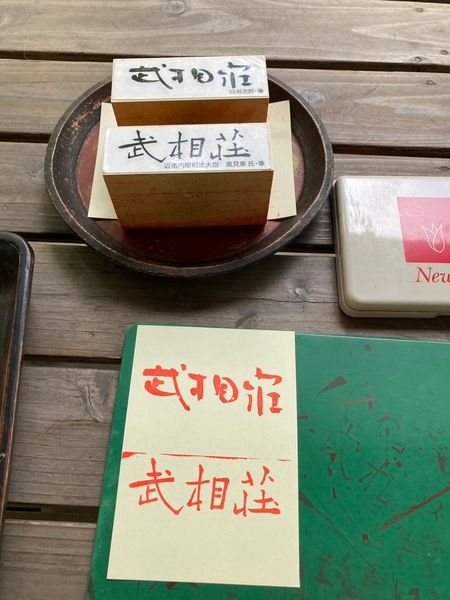 武相荘
白洲次郎・筆
武相荘
近衛内閣司法大臣 風見章 氏・筆
New
武相荘
武相荘